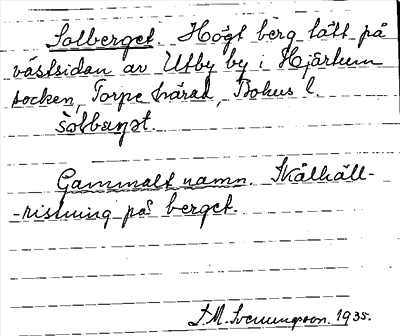 Solberget. Högt berg tätt på
västsidan av Utby by i Hjärtum
socken, Torpe härad, Bohus l.
Gammalt namn. Skålhäll-
-ristning på berget.
1935.